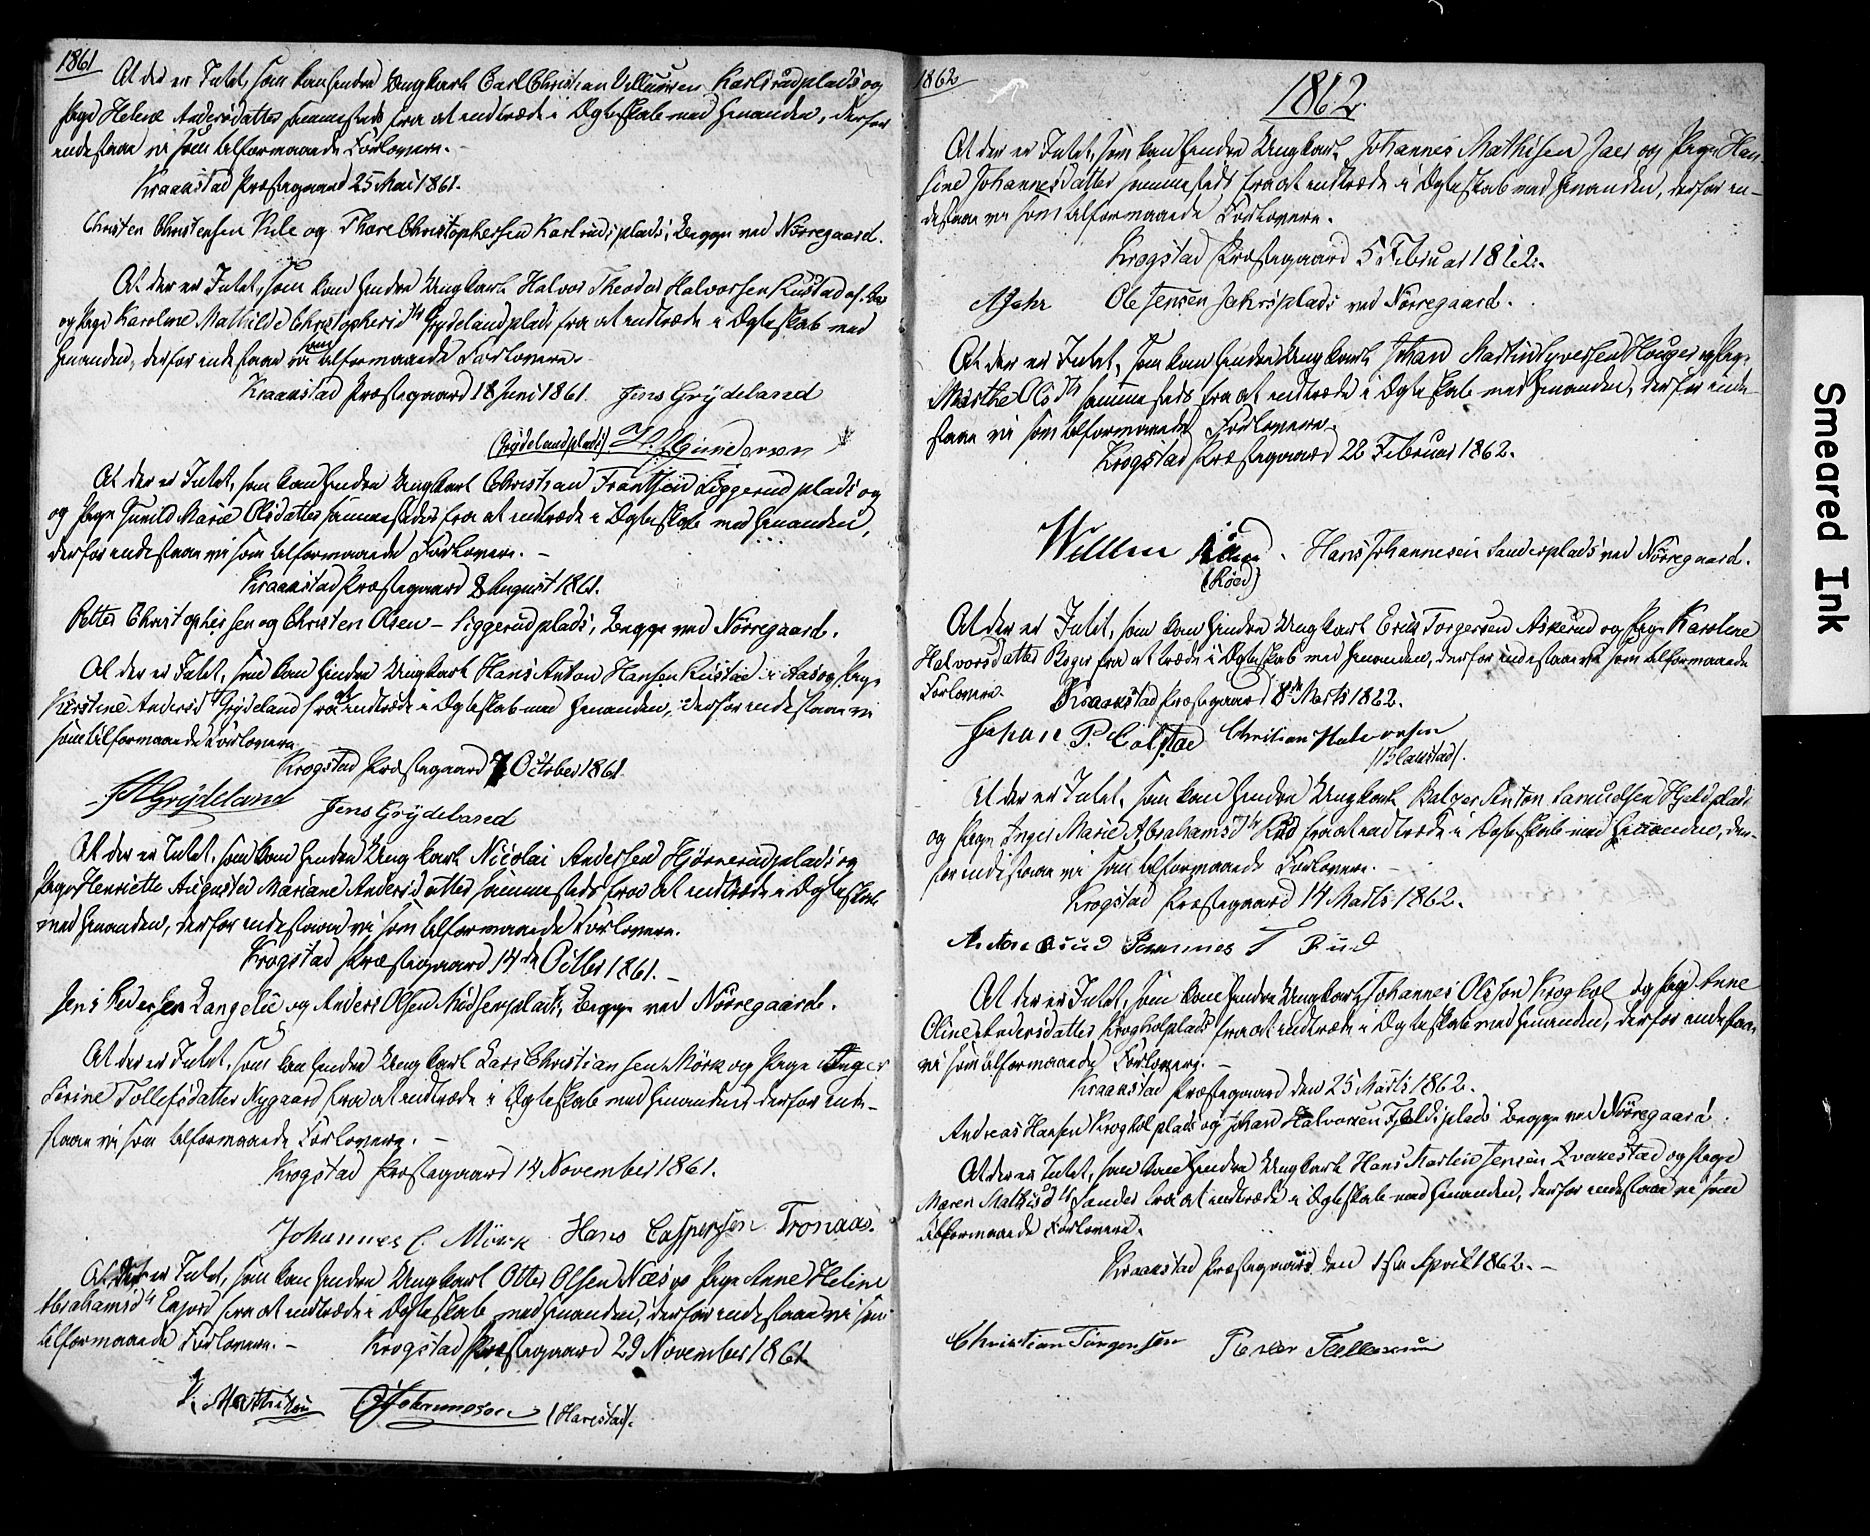 1861
At der er Intet, som kan hindre Ungkarl Carl Christian Villumsen Karlsrudplads og
Pige Helene Andersdatter sammesteds fra at indtræde i Ægteskab med hinanden, derfor
indestaae vi som tilformaaede Forlovere.
Kraakstad Præstegaard 25 Mai 1861.
Christen Christensen Rule og Thore Christophersen Karlrudsplads, begge med Nørregaard.
At der er Intet, som kan hindre Ungkarl Halvor Theodor Halvorsen Rustad af Aas
og Pige Karoline Mathilde Christophersdtr Grydelandplads fra at indtræde i Ægteskab med
hinanden, derfor indestaae vi som tilformaaede Forlovere.
Kraakstad Præstegaard 18 Juni 1861. Jens Grÿdeland
(Grydelandplads) H. Gundersen
At der er Intet, som kan hindre Ungkarl Christian Frantsen Liggerudplads og
og Pige Gunild Marie Olsdatter sammesteds fra at indtræde i Ægteskab med hinanden,
derfor indestaae vi som tilformaaede Forlovere. –
Kraakstad Præstegaard 8 August 1861.
Petter Christophersen og Christen Olsen – Liggerudplads, begge med Nørregaard.
At der er Intet, som kan hindre Ungkarl Hans Anton Hansen Rustad i Aas og Pige
Kirstine Andersdtr Grydeland fra at indtræde i Ægteskab med hinanden, derfor indestaae vi
som tilformaaede Forlovere.
Krogstad Præstegaard 7 October 1861.
A Grÿdeland Jens Grÿdeland
At der er Intet, som kan hindre Ungkarl Nicolai Andersen Hjørnerudplads og
Pige Henriette Augusta Mariane Andersdatter sammesteds fra at indtræde i Ægteskab
med hinanden, derfor indestaae vi som tilformaaede Forlovere.
Krogstad Præstegaard 14de Octbr 1861. –
Jens Pedersen Langelie og Anders Olsen Midsemplads, begge med Nørregaard.
At der er Intet, som kan hindre Ungkarl Lars Christiansen Mørk og Pige Inger
Sørine Tollefsdatter Nygaard fra at indtræde i Ægteskab med hinanden derfor inde-
staae vi som tilformaaede Forlovere. –
Krogstad Præstegaard 14 November 1861.
Johannes C. Mörk Hans Caspersen Tronaas.
At der er Intet, som kan hindre Ungkarl Otter Olsen Næs og Pige Anne Helene
Abrahamsdtr Enjord fra at indtræde i Ægteskab med hinanden, derfor indestaae vi som
tilformaaede Forlovere. – Krogstad Præstegaard 29 November 1861.
Mathisen Johannesen (Harestad).
1862
1862.
At der er Intet, som kan hindre Ungkarl Johannes Mathisen Jaer og Pige Han-
sine Johannesdatter sammesteds fra at indtræde i Ægteskab med hinanden, derfor in-
destaae vi som tilformaaede Forlovere.
Krogstad Præstegaard 5 Februar 1862.
A Jahr Ole Jensen Jahrsplads med Nørregaard.
At der er Intet, som kan hindre Ungkarl Johan Martin Syversen Houger og Pige
Marthe Olsdtr sammesteds fra at indtræde i Ægteskab med hinanden, derfor inde-
staae vi som tilformaaede Forlovere.
Krogstad Præstegaard 22 Februar 1862.
Willem . Hans Johannesen Sanderplads med Nørregaard.
(Röed)
At der er Intet, som kan hindre Ungkarl Erik Torgersen Askerud og Pige Karoline
Halvorsdatter Boger fra at træde i Ægteskab med hinanden, derfor indestaae vi som tilformaaede
Forlovere. Kraakstad Præstegaard 8de Marts 1862.
Johan P. Colstad Christian Halvorsen
(Blakstad).
At der er Intet, som kan hindre Ungkarl Balzer Anton Samuelsen Hjeldplads
og Pige Inger Marie Abrahamsdtr Rud fra at indtræde i Ægteskab med hinanden, der-
for indestaae vi som tilformaaede Forlovere. –
Krogstad Præstegaard 14 Marts 1862.
Johannes T Rud
At der er Intet, som kan hindre Ungkarl Johannes Olsson Krogbøl og Pige Anne
Oline Andersdatter Krogbølplads fra at indtræde i Ægteskab med hinanden, derfor indestaae
vi som tilformaaede Forlovere. –
Kraakstad Præstegaard den 25 Marts 1862.
Andreas Hansen Krogbølplads og Johan Halvorsen Fjeldsplads begge med Nørregaard.
At der er Intet, som kan hindre Ungkarl Hans Martin Jensen Qvakestad og Pige
Maren Mathisdtr Sander fra at indtræde i Ægteskab med hinanden, derfor indestaae vi som
tilformaaede Forlovere.
Kraakstad Præstegaard den 1ste April 1862. –
Christian Jörgensen Peder
Smeared Ink